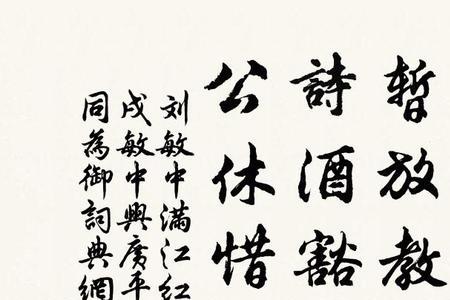 暫放教
詩酒豁
公休惜
刘敏中满江红
戌敏中興廣平
同為御詞典網